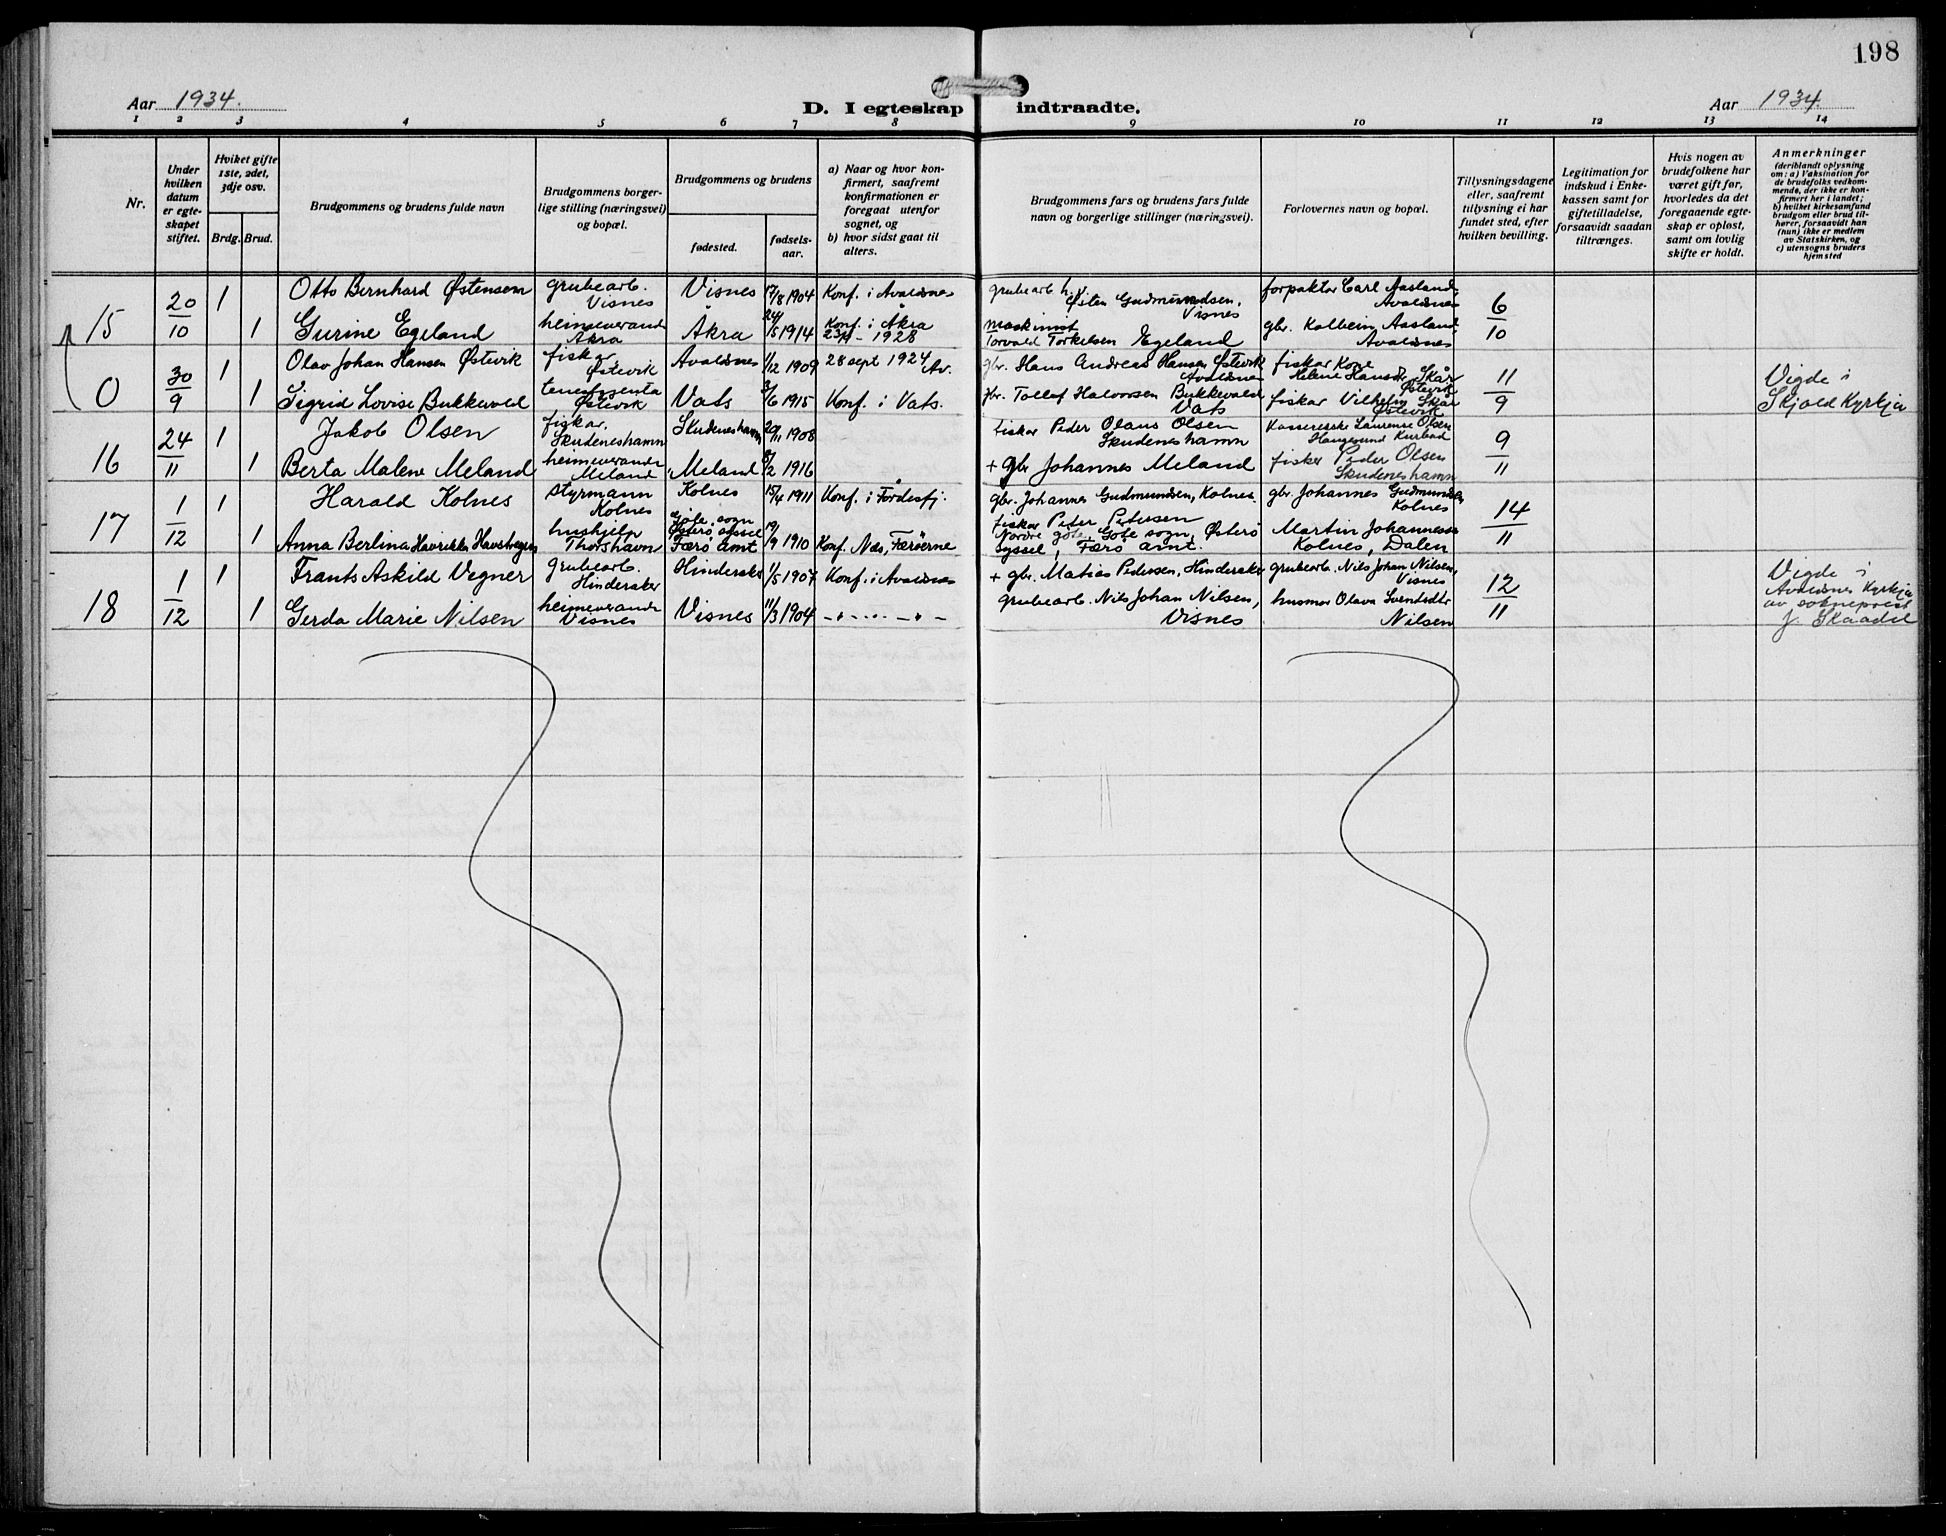 198
Aar 1934.
D. I egteskap indtraadte.
Aar 1934.
1 2 3 4 5 6 7 8 9 10 11 12 13 14
Nr.
Under hvilken datum er egteskapet stiftet.
Hvilket gifte 1ste, 2det, 3dje osv.
Brdg. Brud.
Brudgommens og brudens fulde navn
Brudgommens borgerlige stilling (næringsvei) og bopæl.
Brudgommens og brudens
fødested.
fødselsaar.
a) Naar og hvor konfirmert, saafremt konfirmationen er foregaat utenfor sognet, og
b) hvor sidst gaat til alters.
Brudgommens fars og brudens fars fulde navn og borgerlige stillinger (næringsvei).
Forlovernes navn og bopæl.
Tillysningsdagene eller, saafremt tillysning ei har fundet sted, efter hvilken bevilling.
Legitimation for indskud i Enkekassen samt for giftetilladelse, forsaavidt saadan tiltrænges.
Hvis nogen av brudefolkene har været gift før, hvorledes da det foregaaende egteskap er opløst, samt om lovlig skifte er holdt.
Anmerkninger
(deriblandt oplysning om: a) Vaksination for de brudefolks vedkommende, der ikke er konfirmert her i landet; b) hvilket kirkesamfund brudgom eller brud tilhører, forsaavidt han (hun) ikke er medlem av Statskirken, og c) utensogns bruders hjemsted
15 20/10 1 Otto Bernhard Østensen grubearb. Visnes Visnes 17/8 1904 Konf. i Avaldsnes grubearb. h.v. Østen Gudmundsen, Visnes forpaktar Carl Aasland, Avaldsnes 6/10
1 Gurine Egeland heimeverande Åkra Åkra 24/5 1914 Konf. i Åkra 23/9 - 1928 maskinist Torvald Torkelsen Egeland gbr. Kolbein Aasland Avaldsnes
0 30/9 1 Olav Johan Hansen Østevik fiskar, Østevik Avaldsnes 1/12 1909 28 sept 1924 Av. gbr. Hans Andreas Hansen Østevik Avaldsnes fiskar Kone Helene Hansdr. Skår Østevik 11/9
1 Sigrid Lovise Bukkevold tenestgjenta Østevik Vats 3/6 1915 Konf. i Vats. gbr. Tollef Halvorsen Bukkevold Vats fiskar Vilhelm Skår Østevik Vigde i Skjold Kyrkja
16 24/11 1 Jakob Olsen fiskar, Skudeneshamn Skudeneshamn 20/11 1908 fiskar Peder Olaus Olsen Skudeneshamn Laurense Olsen Haugesund Kurbad 9/11
1 Berta Malene Meland heimeverande Meland Meland 8/2 1916 + gbr Johannes Meland fisker Peder Olsen Skudeneshamn
17 1/12 1 Harald Kolnes styrmann Kolnes Kolnes 15/4 1911 Konf. i Førdesfj. gbr. Johannes Gudmundsen, Kolnes. gbr. Johannes Gudmundsen Kolnes 14/11
1 Anna Berlina Havstein hushjelp Thorshavn Gøte sogn Østerø syssel Færø amt 19/9 1910 Konf. Næs, Færøerne fiskar Peter Petersen Nordre gøte, Gøte sogn, Østerø syssel, Færø amt. Martin Johannessen Kolnes, Dalen
18 1/12 1 Frants Askild Vegner grubearb. Hindersker Hindersker 1/5 1907 Konf. i Avaldsnes + gbr. Matias Pedersen, Hindersker grubearb. Nils Johan Nilsen, Visnes 12/11
1 Gerda Marie Nilsen heimeverande Visnes Visnes 11/3 1904 - " - - " - grubearb. Nils Johan Nilsen, Visnes husmor Olava Svendsdtr Nilsen Vigde i Avaldsnes Kyrkja av sokneprest J. Skaadel